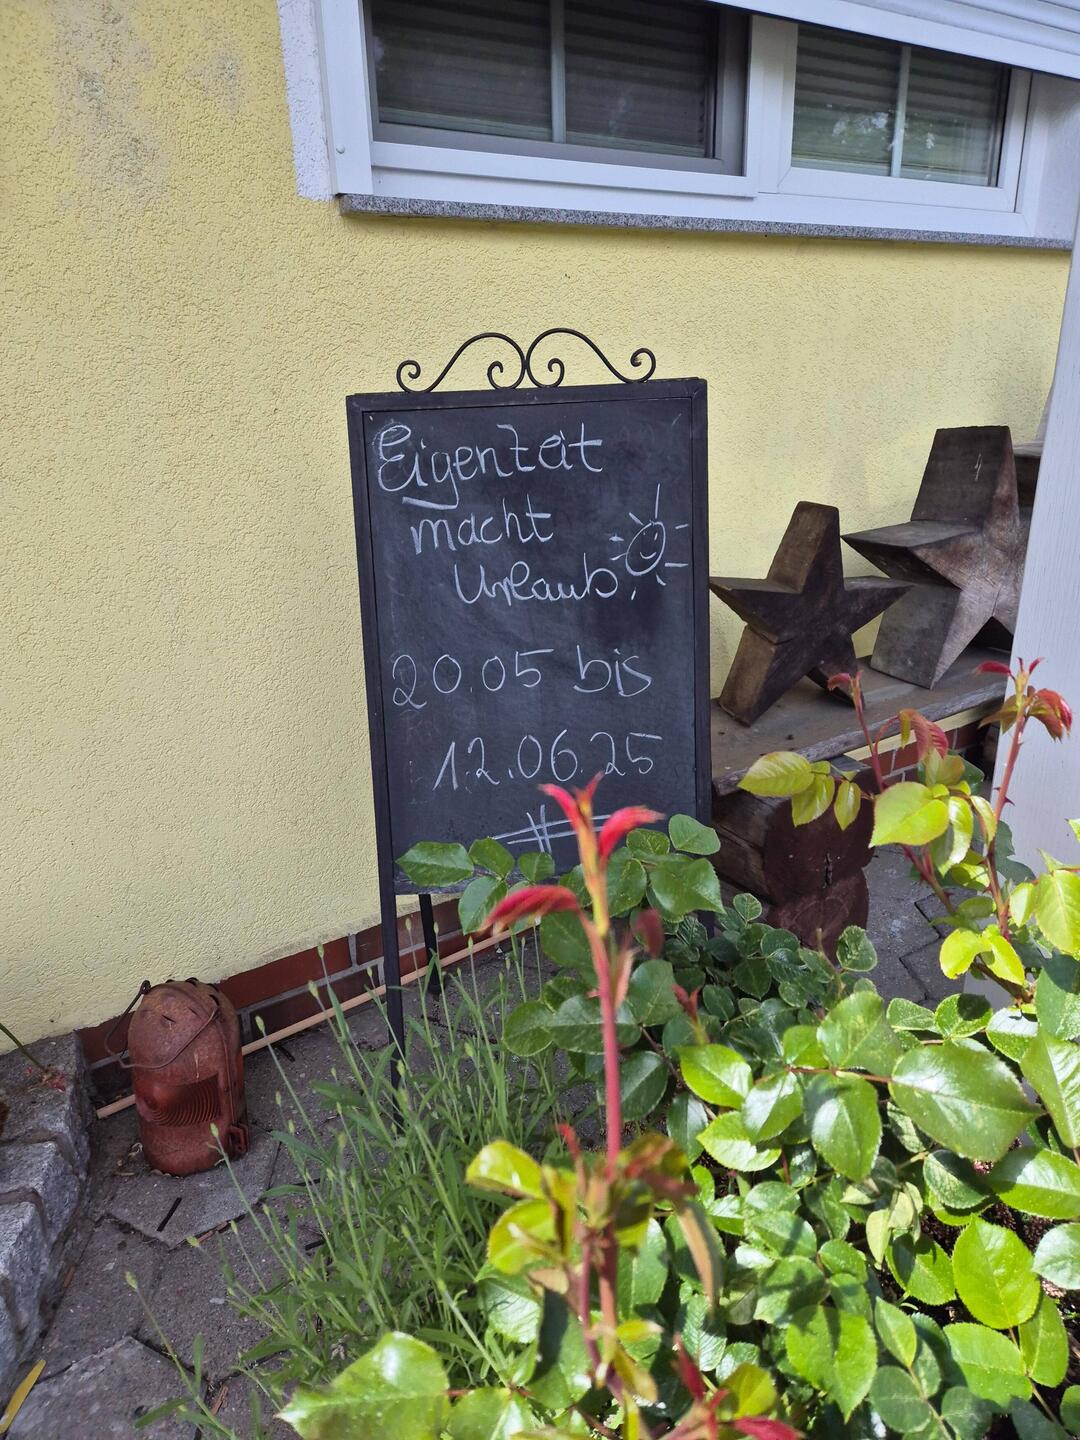 EigenZeit
macht
Urlaub.
20.05 bis
12.06.25